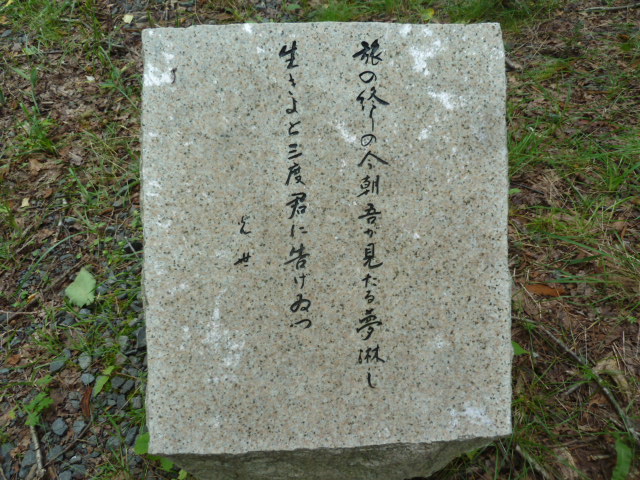 旅の終りの今朝吾が見たる夢淋し
生きよと三度君に告げゐつ
光世